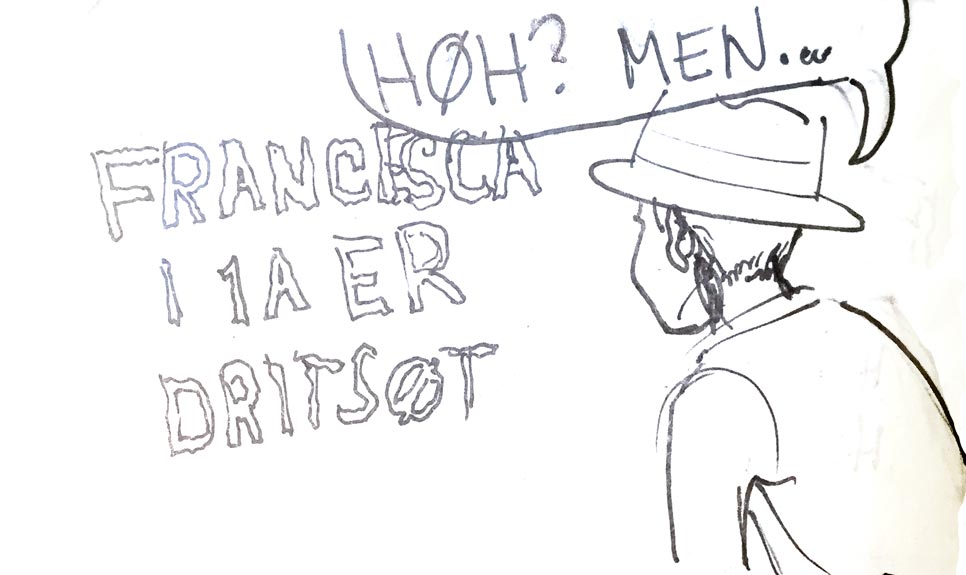 HØH? MEN...
FRANCISCA
I 1A ER
DRITSØT